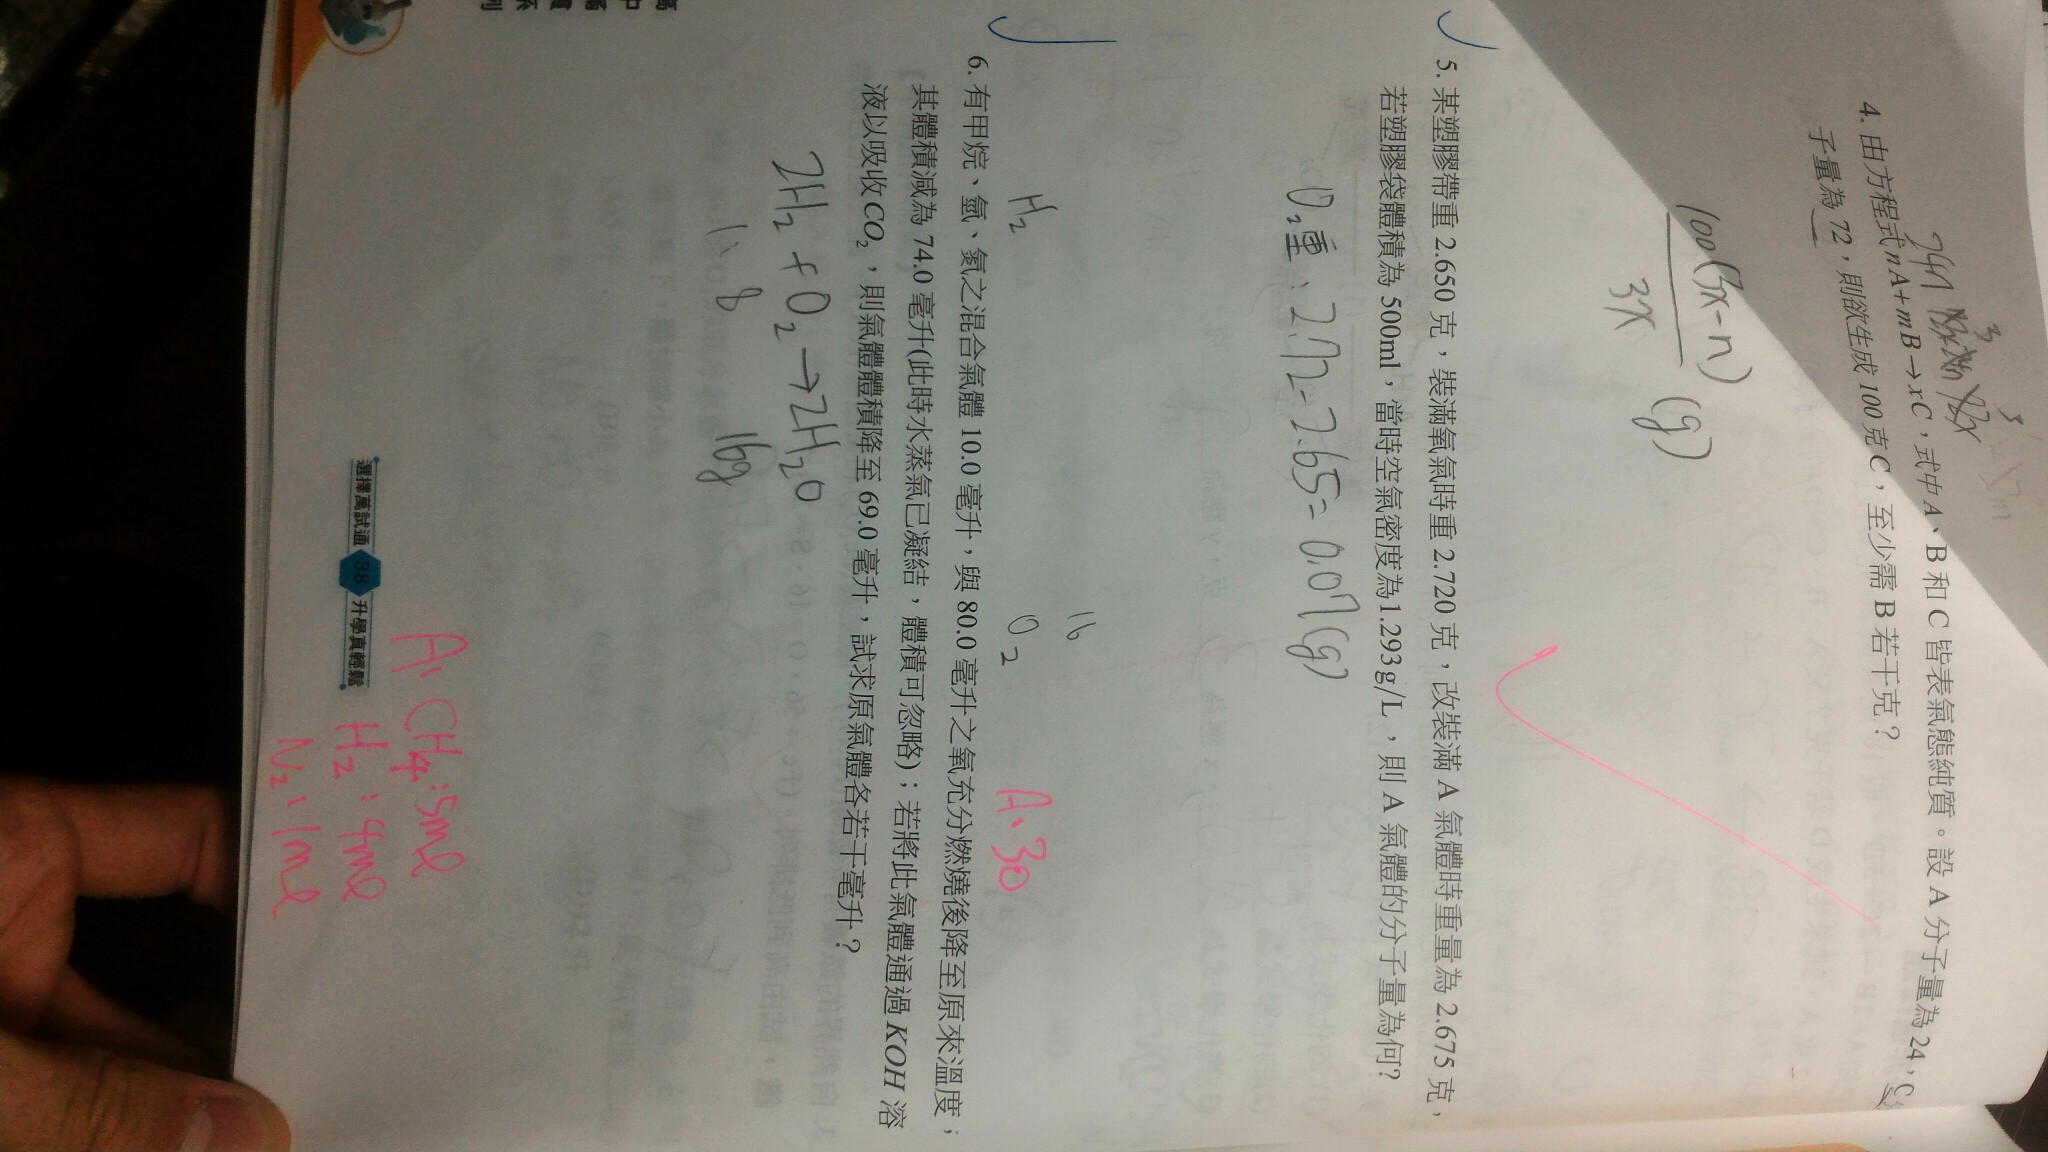 4. 由方程式nA+mB→xC，式中A、B和C皆表氣態純質。設A分子量為24，C分
子量為72，則欲生成100克C，至少需B若干克？
100(3x-n)
3x
(g)
5. 某塑膠帶重2.650克，裝滿氧氣時重2.720克，改裝滿A氣體時重量為2.675克，
若塑膠袋體積為500ml，當時空氣密度為1.293g/L，則A氣體的分子量為何?
O₂重：2.72-2.65=0.07(g)
16
H₂
O₂
A:30
6. 有甲烷、氫、氮之混合氣體10.0毫升，與80.0毫升之氧充分燃燒後降至原來溫度；
其體積減為74.0毫升(此時水蒸氣已凝結，體積可忽略)；若將此氣體通過KOH溶
液以吸收CO₂，則氣體體積降至69.0毫升，試求原氣體各若干毫升？
2H₂+O₂→2H₂O
1:8
16g
A: CH₄:5ml
H₂:4ml
N₂:1ml
選擇萬試通 38 升學真輕鬆